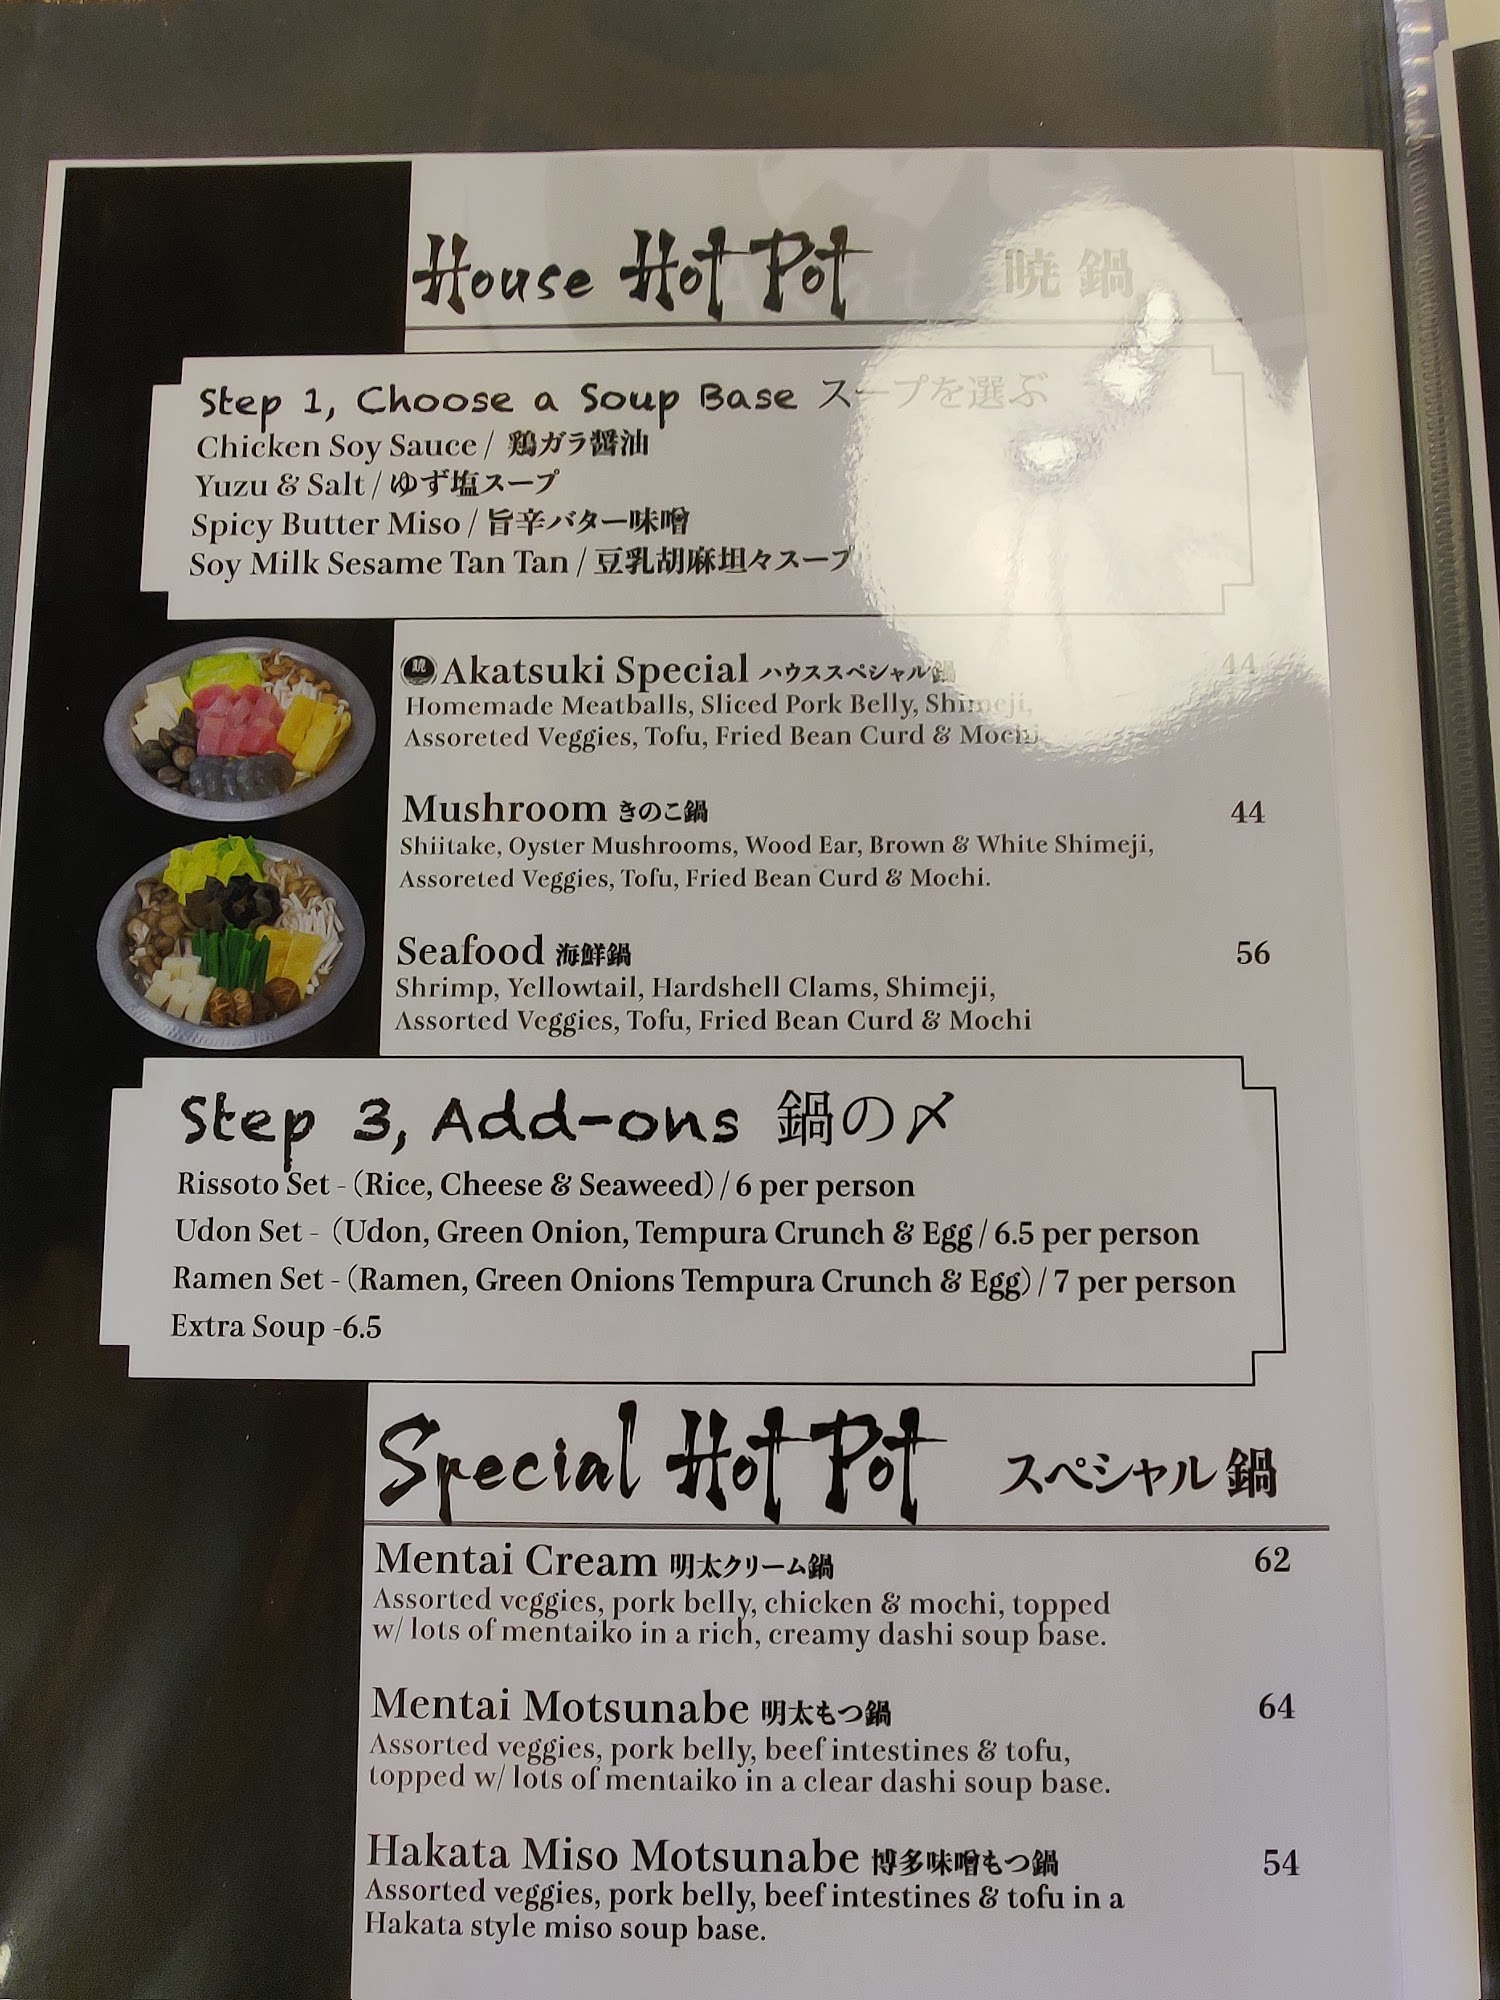 House Hot Pot 暁鍋
Step 1, Choose a Soup Base スープを選ぶ
Chicken Soy Sauce / 鶏ガラ醤油
Yuzu & Salt / ゆず塩スープ
Spicy Butter Miso / 旨辛バター味噌
Soy Milk Sesame Tan Tan / 豆乳胡麻坦々スープ
暁 Akatsuki Special ハウススペシャル鍋 44
Homemade Meatballs, Sliced Pork Belly, Shimeji,
Assoreted Veggies, Tofu, Fried Bean Curd & Mochi
Mushroom きのこ鍋 44
Shiitake, Oyster Mushrooms, Wood Ear, Brown & White Shimeji,
Assoreted Veggies, Tofu, Fried Bean Curd & Mochi.
Seafood 海鮮鍋 56
Shrimp, Yellowtail, Hardshell Clams, Shimeji,
Assorted Veggies, Tofu, Fried Bean Curd & Mochi
Step 3, Add-ons 鍋の〆
Rissoto Set - (Rice, Cheese & Seaweed) / 6 per person
Udon Set - (Udon, Green Onion, Tempura Crunch & Egg / 6.5 per person
Ramen Set - (Ramen, Green Onions Tempura Crunch & Egg) / 7 per person
Extra Soup -6.5
Special Hot Pot スペシャル鍋
Mentai Cream 明太クリーム鍋 62
Assorted veggies, pork belly, chicken & mochi, topped
w/ lots of mentaiko in a rich, creamy dashi soup base.
Mentai Motsunabe 明太もつ鍋 64
Assorted veggies, pork belly, beef intestines & tofu,
topped w/ lots of mentaiko in a clear dashi soup base.
Hakata Miso Motsunabe 博多味噌もつ鍋 54
Assorted veggies, pork belly, beef intestines & tofu in a
Hakata style miso soup base.